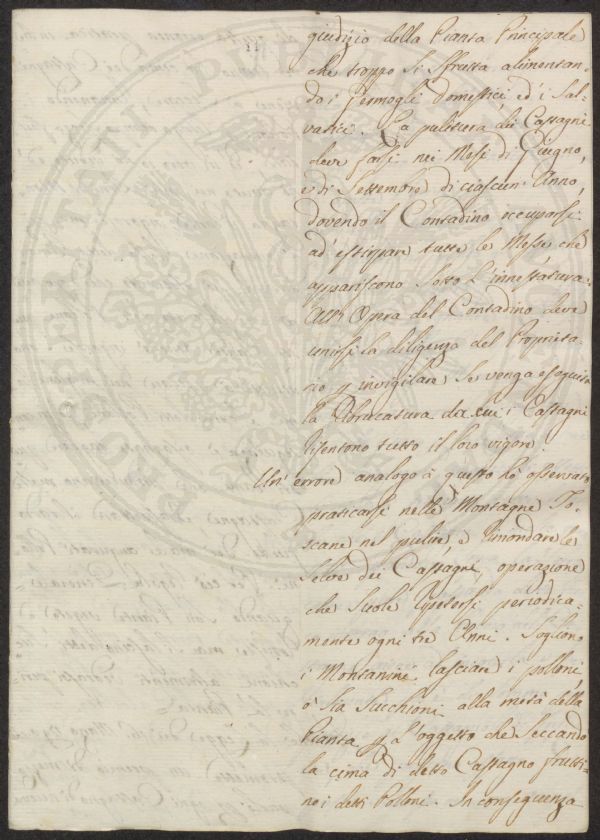 giudizio della Pianta Principale
che troppo si sfrutta alimentan-
do i Germogli domestici, ed i Sal-
vatici. La pulitura dei Castagni
deve farsi nei Mesi di Giugno,
e di Settembre di ciascun Anno,
dovendo il Contadino occuparsi
ad estirpare tutte le Messe, che
appariscono Sotto l'innestatura.
All' Opera del Contadino deve
unirsi la diligenza del Proprieta-
rio p invigilare Se venga eseguita
la da cui i Castagni
risentono tutto il loro vigore.
Un' errore analogo à questo hò osservato
praticarsi nelle Montagne To-
scane nel pulire, e rimondare le
Selve dei Castagni, operazione
che Suole ripetersi periodica-
mente ogni tre Anni. Sogliono
i Montanini lasciare i polloni,
ò Sia Succhioni alla metà della
Pianta p l'oggetto che Seccando
la cima di detto Castagno frutti-
no i detti Polloni. In conseguenza